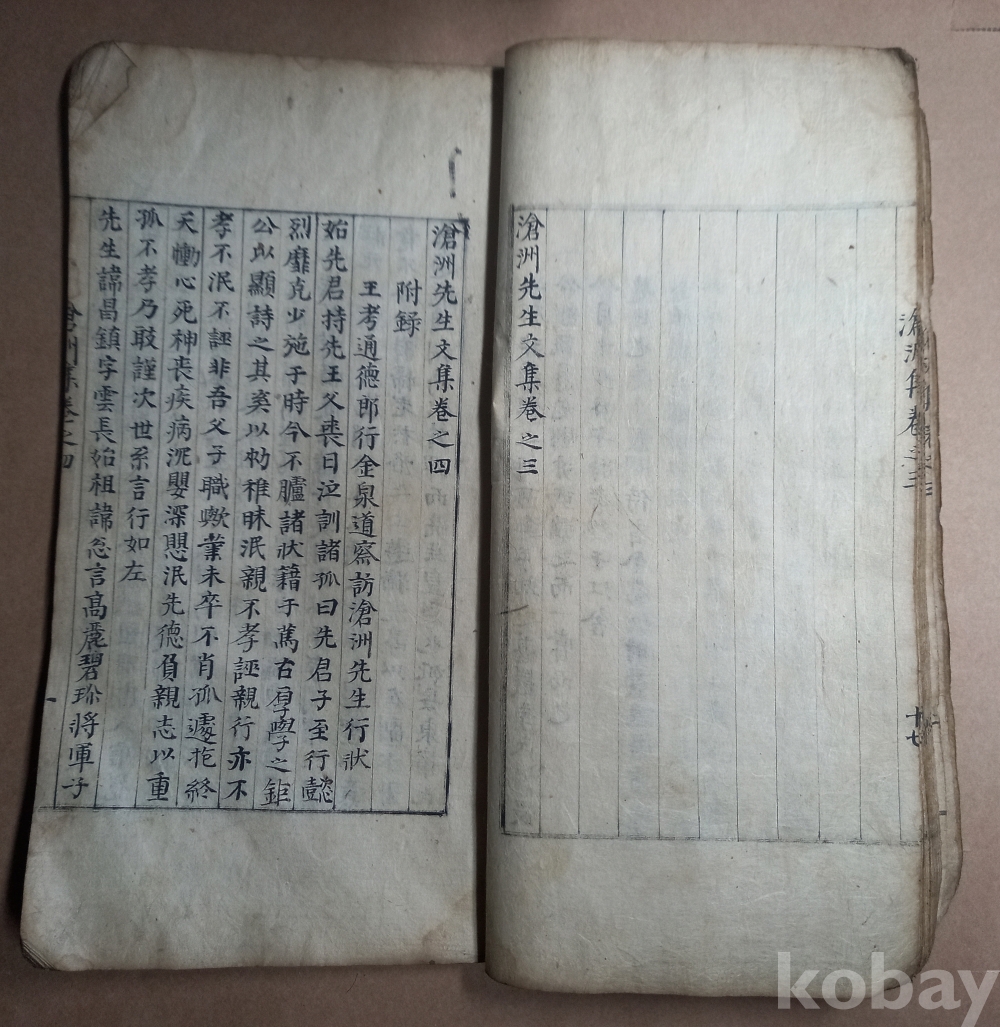 滄洲先生文集卷之三
滄洲集卷之三
十七
滄洲先生文集卷之四
附錄
王考通德郎行金泉道察訪滄洲先生行狀
始先君持先王父喪日泣訓諸孤曰先君子至行懿
烈靡克少施于時今不臚諸狀籍于蒿右厚學之鉅
公以顯詩之其奚以劬稚昧泯親不孝誣親行亦不
孝不泯不誣非吾父子職歟業未卒不肖孤遽抱終
天慟心死神喪疾病沉嬰深思泯先德負親志以重
孤不孝乃敢謹次世系言行如左
先生諱昌鎮字雲長始祖諱忽言高麗碧珍將軍子
滄洲集卷之四
kobay